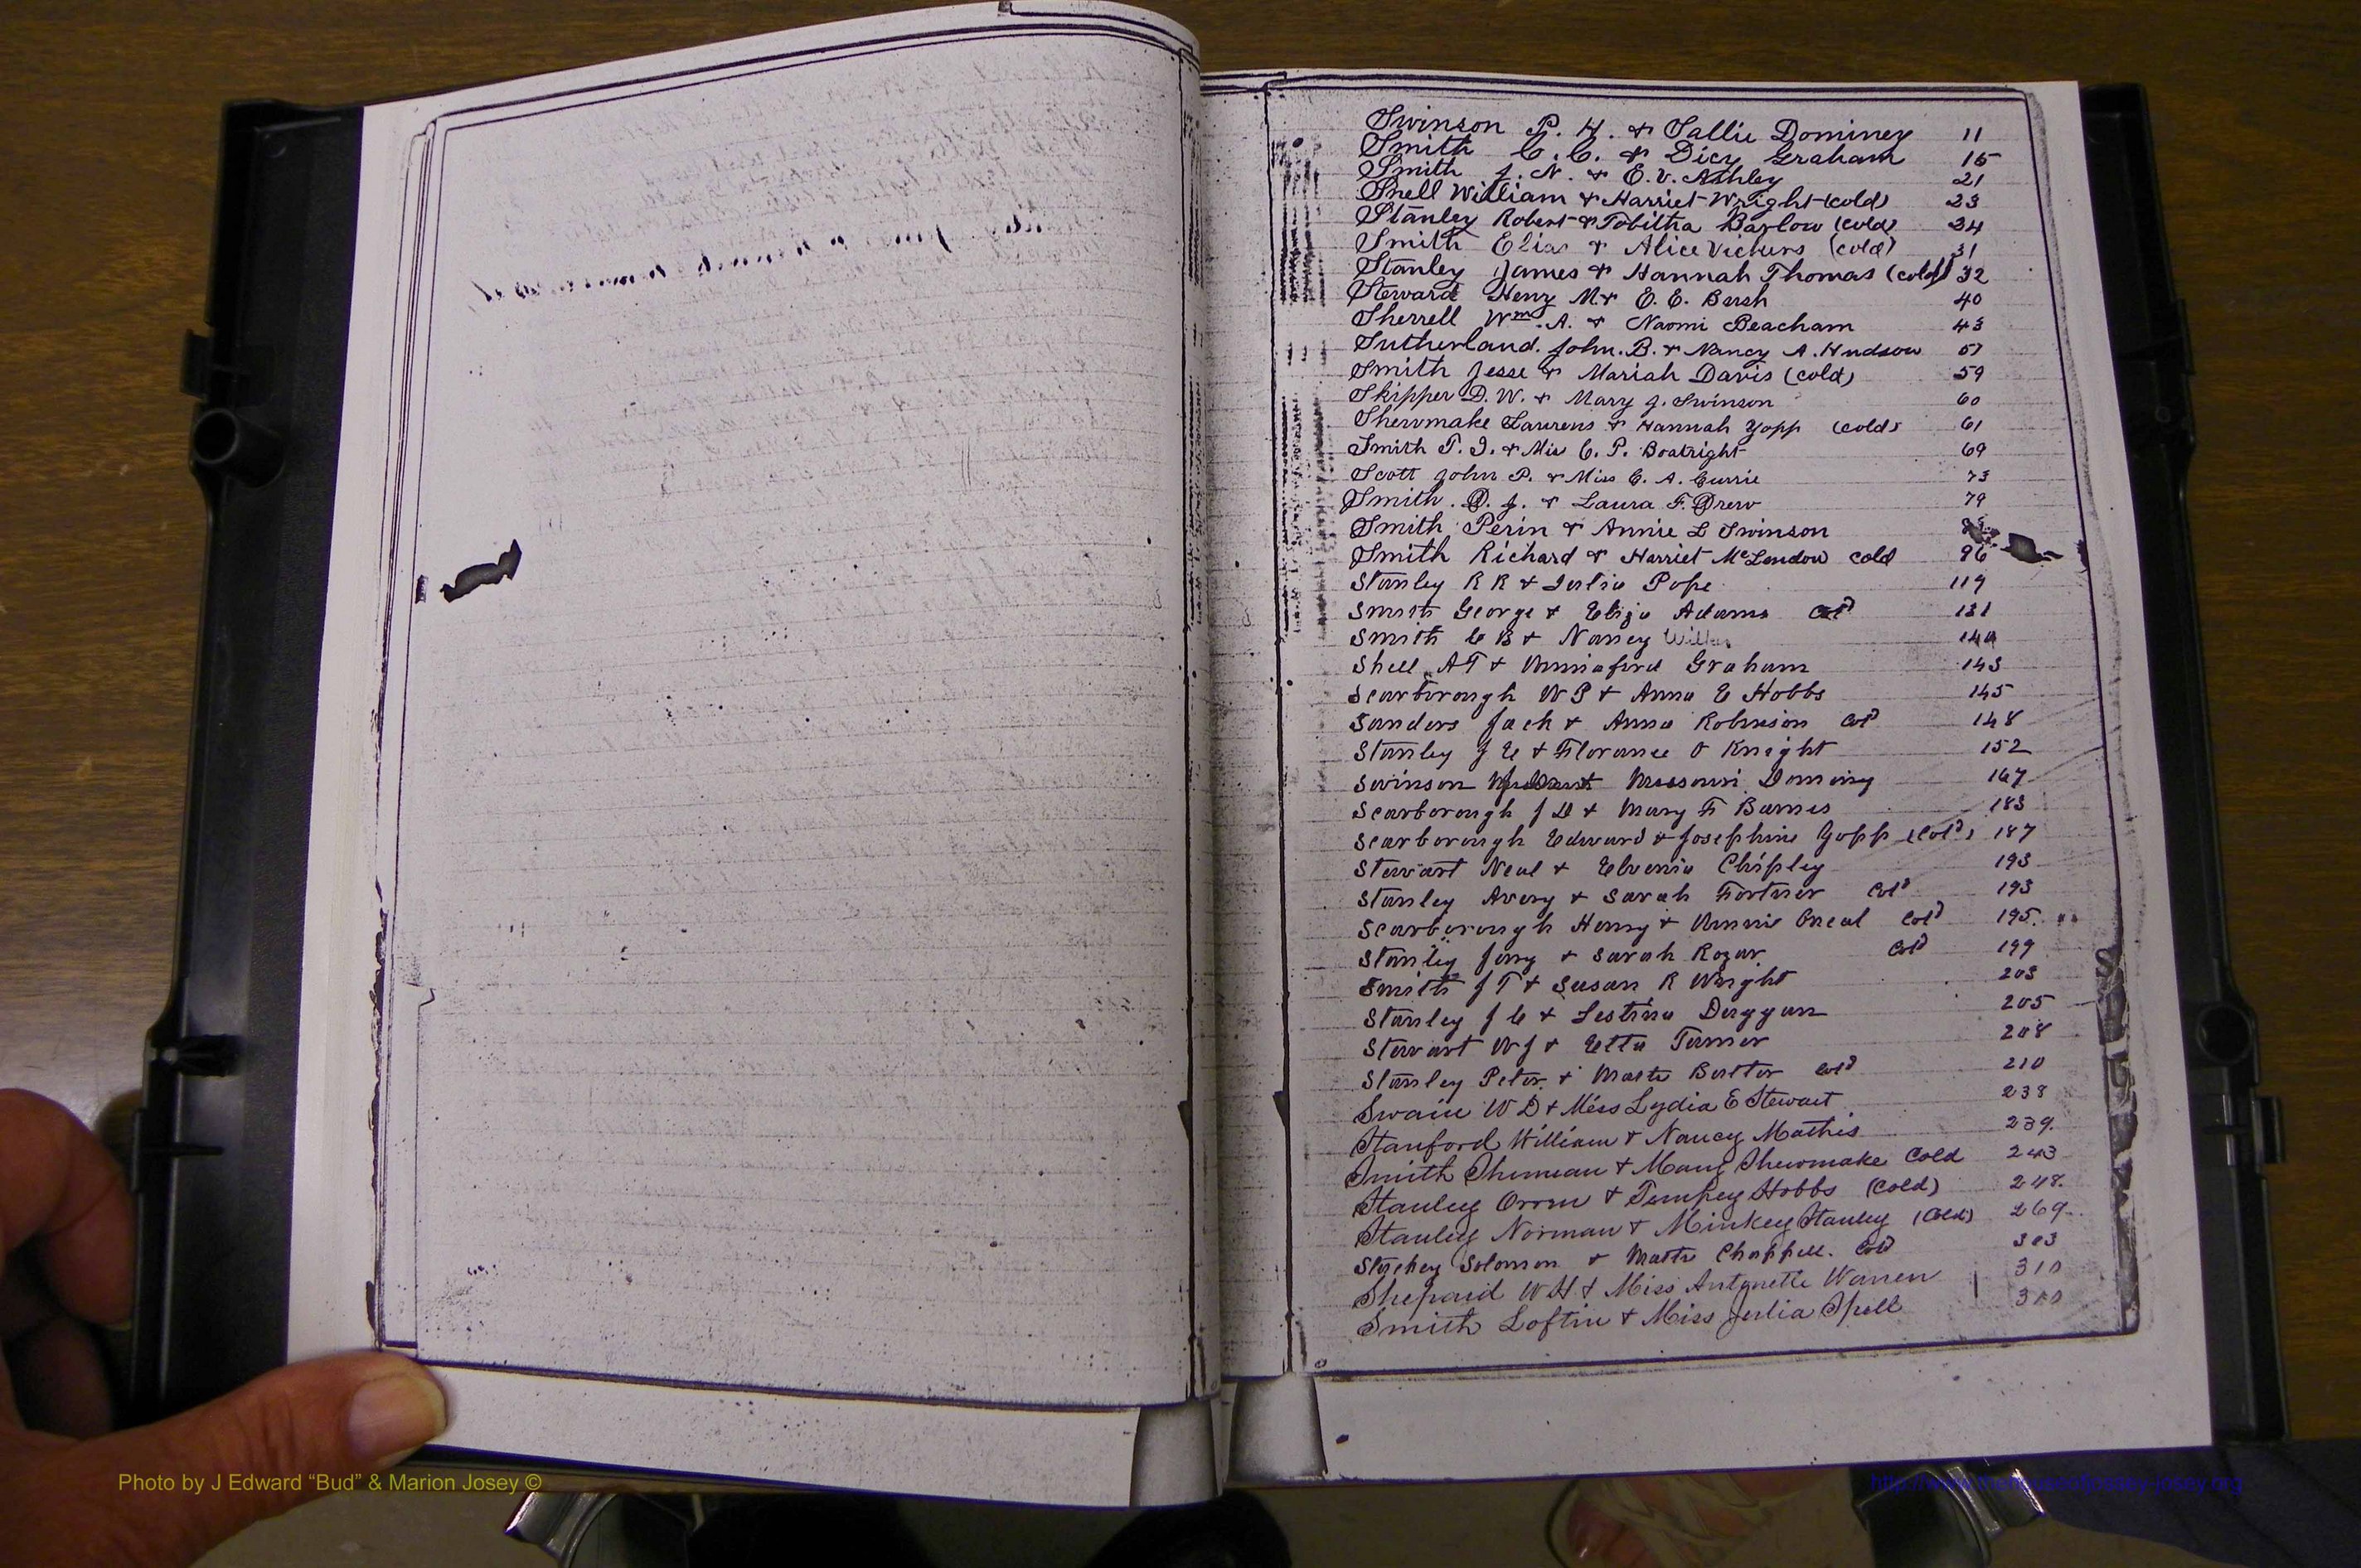 Swinson P. H. & Sallie Dominey 11
Smith C. C. & Dicy Graham 15
Smith J. N. & E. V. Ashley 21
Snell William & Harriet Wright (cold) 23
Stanley Robert & Tobitha Barlow (cold) 24
Smith Elias & Alice Vickers (cold) 31
Stanley James & Hannah Thomas (cold) 32
Steward Henry M. & E. E. Bush 40
Sherrell Wm. A. & Naomi Beacham 43
Sutherland. John. B. & Nancy A. Hudson 57
Smith Jesse & Mariah Davis (cold) 59
Skipper D. W. & Mary J. Swinson 60
Shewmake Laurens & Hannah Yopp (cold) 61
Smith T. J. & Miss C. P. Boatright 69
Scott John P. & Miss C. A. Currie 73
Smith. D. J. & Laura F. Drew 79
Smith Perin & Annie L Swinson
Smith Richard & Harriet McLendon cold 96
Stanley R R & Julia Pope 119
Smith George & Eliza Adams Cold 131
Smith C B & Nancy 140
Shell A T & Graham 143
Scarborough W P & Anna E Hobbs 145
Sanders Jack & Anna Robinson Cold 148
Stanley J E & Florance O Knight 152
Swinson Missouri Dominy 167
Scarborough J D & Mary F Barnes 183
Scarborough Edward & Josephine Yopp (Cold) 187
Stewart Neal & Elvenia Chipley 193
Stanley Avery & Sarah Fortner Cold 193
Scarborough Henry & Annie Oneal Cold 195
Stanley Jerry & Sarah Rozar Cold 199
Smith J T & Susan R Wright 203
Stanley J C & Lestina Duggan 205
Stewart W J & Etta Turner 208
Stanley Peter & Cold 210
Swain W D & Miss Lydia E Stewart 238
Stanford William & Nancy Mathis 239
Smith & Mary Shewmake Cold 243
Stanley Orren & Tempey Hobbs (Cold) 248
Stanley Norman & Minkey Stanley (Cold) 269
Solomon & Chappell. Cold 303
Shepard W H & Miss Warren 310
Smith Loftin & Miss Julia Spell 310
Photo by J Edward “Bud” & Marion Josey ©
http://www.thehouseofjossey-josey.org